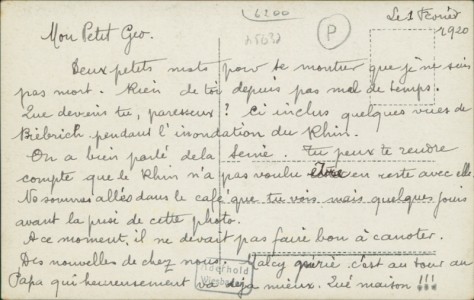 6200
15032
P
Le 1 Février
1920
Mon Petit Geo.
Deux petits mots pour te montrer que je ne suis
pas mort. Rien de toi depuis pas mal de temps.
Que deviens tu, paresseux ? Ci inclus quelques vues de
Biebrich pendant l'inondation du Rhin.
On a bien parlé de la Seine. Tu peux te rendre
compte que le Rhin n'a pas voulu être en reste avec elle.
Nous sommes allés dans le café que tu vois mais quelques jours
avant la prise de cette photo.
A ce moment, il ne devait pas faire bon à canoter.
Des nouvelles de chez nous. guérie c'est au tour au
Papa qui heureusement va déjà mieux. Qué maison !!!